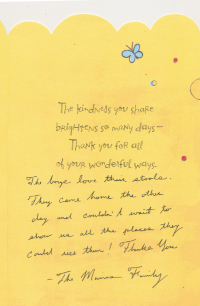 The kindness you share
brightens so many days—
Thank you for all
of your wonderful ways.
The boys love their stools.
They came home the other
day and couldn't wait to
show us all the places they
could use them! Thank You
- The Family